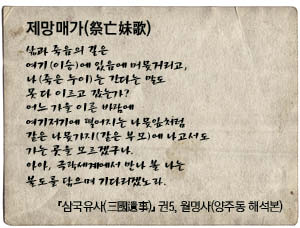 제망매가(祭亡妹歌)
삶과 죽음의 길은
여기(이승)에 있음에 머뭇거리고,
나(죽은 누이)는 간다는 말도
못 다 이르고 갔는가?
어느 가을 이른 바람에
여기저기에 떨어지는 나뭇잎처럼
같은 나뭇가지(같은 부모)에 나고서도
가는 곳을 모르겠구나.
아아, 극락세계에서 만나 볼 나는
불도를 닦으며 기다리겠노라.
『삼국유사(三國遺事)』 권5, 월명사(양주동 해석본)